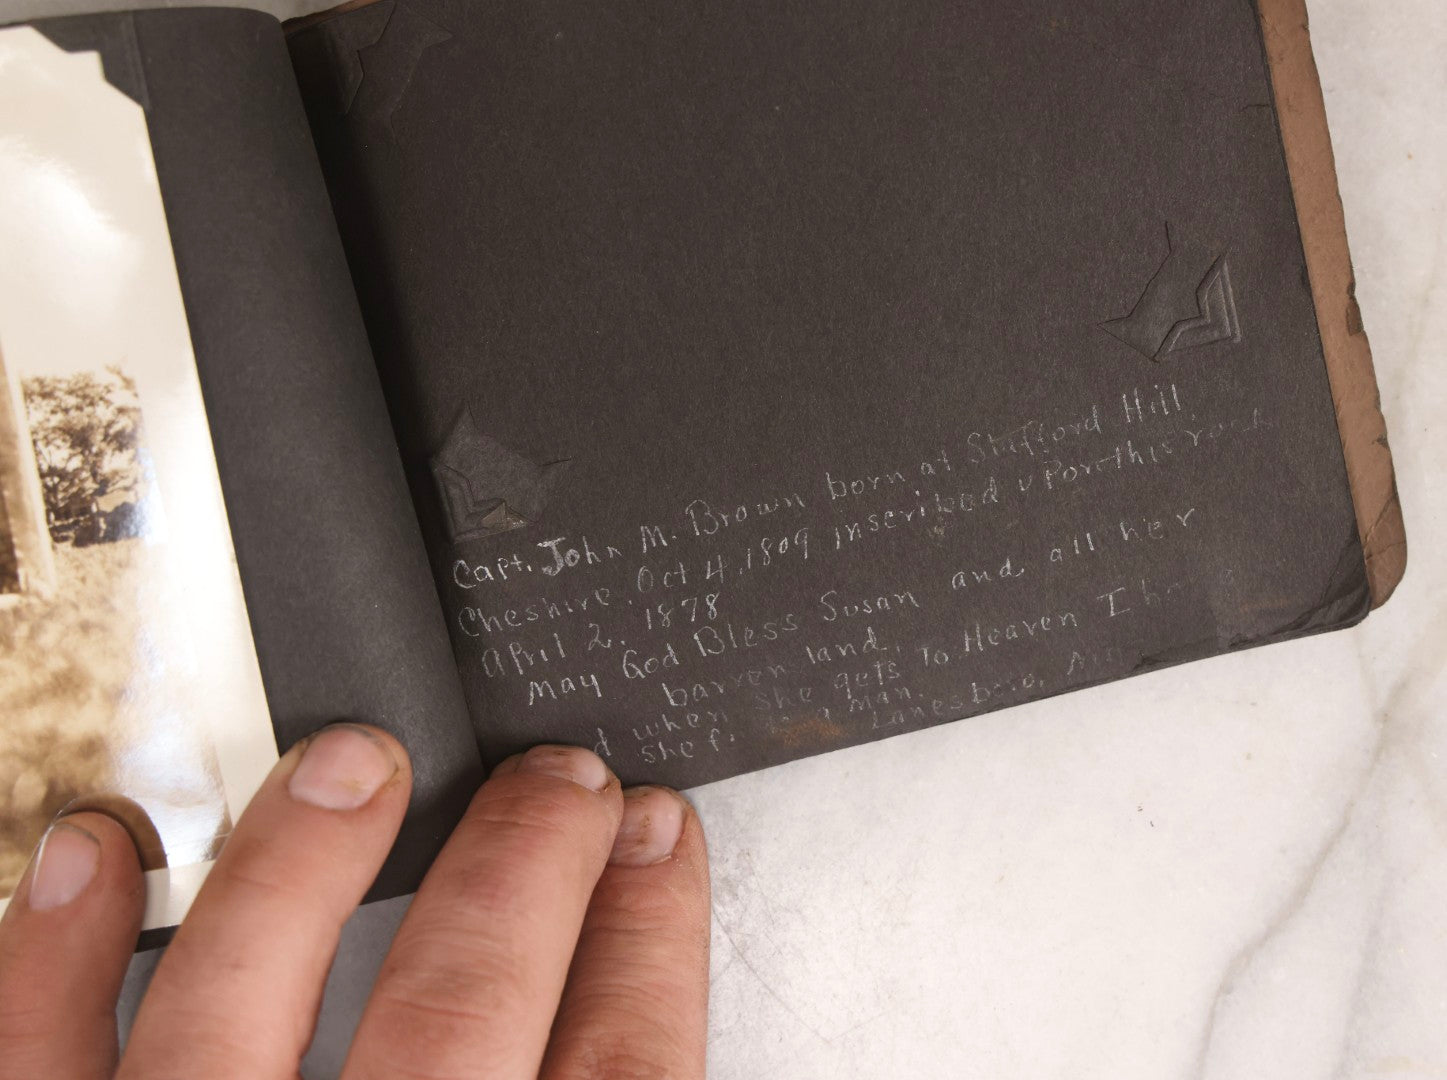 Capt. John M. Brown born at Stafford Hill,
Cheshire. Oct 4, 1809 inscribed upon this rock
April 2, 1878
May God Bless Susan and all her
barren land,
when she gets To Heaven I
She a man.
Lanesboro,